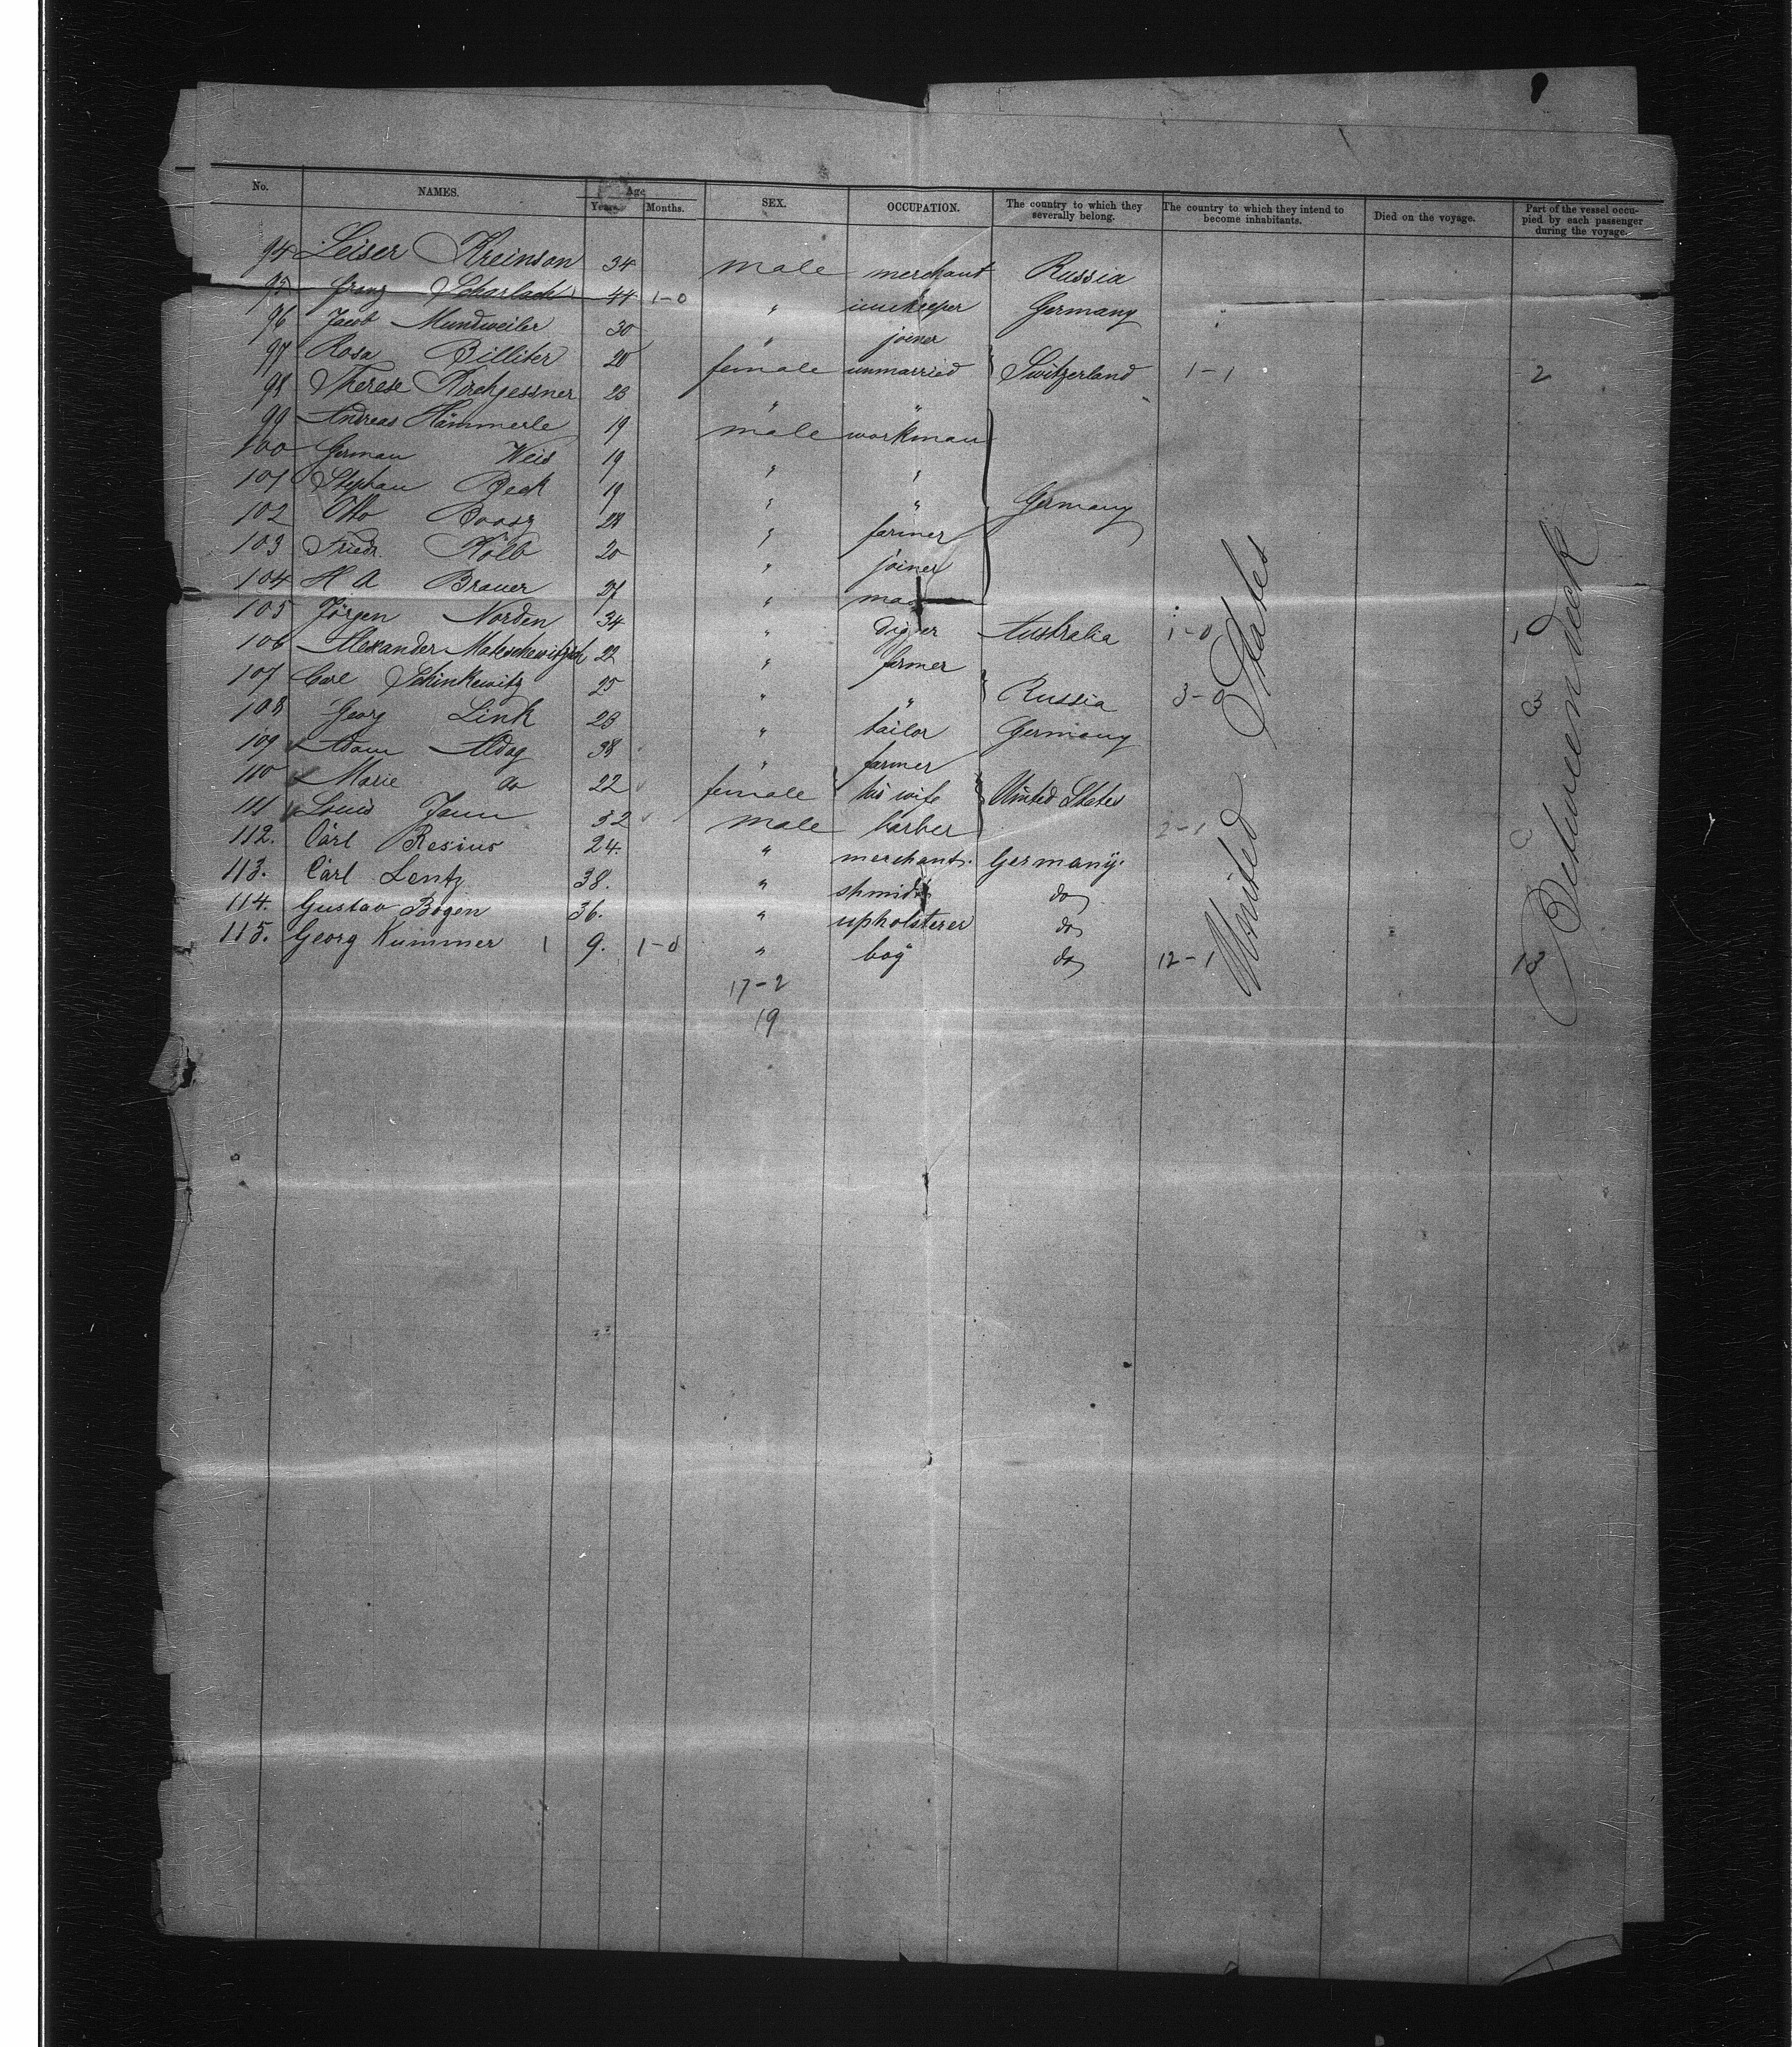 No. NAMES. Age Years. Months. SEX. OCCUPATION. The country to which they severally belong. The country to which they intend to become inhabitants. Died on the voyage. Part of the vessel occupied by each passenger during the voyage.
94 Leiser Kreinson 34 male merchant Russia
95 Franz Scharlach 44 1-0 " innkeeper Germany
96 Jacob Mundweiler 30 " joiner
97 Rosa Billiter 20 female unmarried Switzerland 1-1 2
98 Therese Kirchgessner 23 " "
99 Andreas Hämmerle 19 male workman
100 German Weis 19 " "
101 Stephan Beck 19 " " Germany
102 Otto Boosz 28 " farmer
103 Friedr. Kolb 20 " joiner
104 H A Brauer 27 "
105 Jörgen Norden 34 " digger Australia 1-0 1
106 Alexander 22 " farmer
107 Carl Schinkewitz 25 " " Russia 3-0 3
108 Georg Link 23 " tailor Germany
109 Adam Aldag 38 " farmer
110 Marie do 22 female his wife United States
111 Louis Jann 32 male barber 2-1
112. Carl Resius 24. " merchant. Germany.
113. Carl Lentz 38. " do
114. Gustav Bogen 36. " upholsterer do
115. Georg Kummer 1 9. 1-0 " boy do 12-1 13
17-2
19
United States
Betweendeck